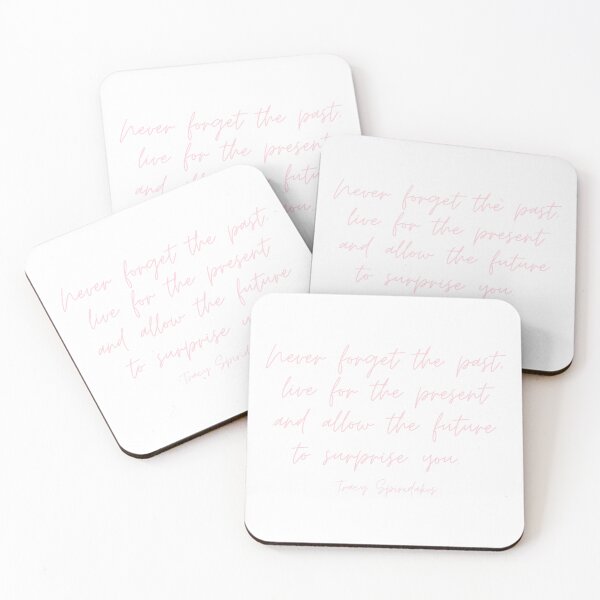 Never forget the past,
live for the present
and allow the future
Never forget the past,
live for the present
and allow the future
to surprise you
Never forget the past,
live for the present
and allow the future
to surprise you
Tracy
Never forget the past,
live for the present
and allow the future
to surprise you
Tracy Spiridakos